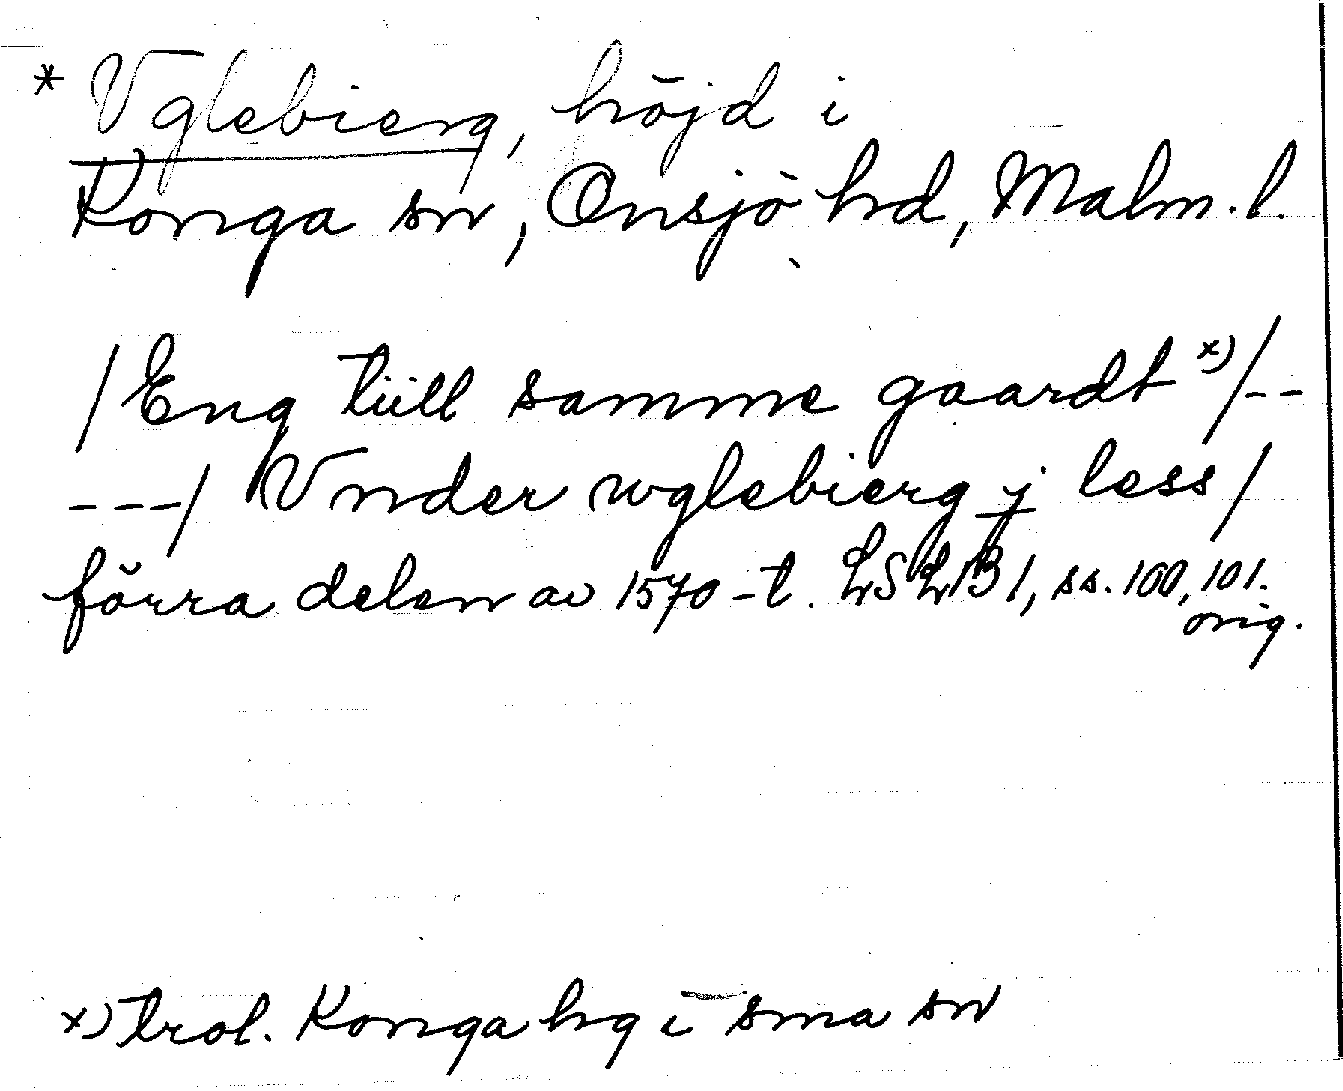 * Vglebierg, höjd i
Konga sn, Onsjö hd, Malm. l.
/Eng tiill samme gaardt x)/--
---/ Vnder wglebierg j less/
förra delen av 1570-t. LSLB1, ss. 100, 101.
orig.
x) trol. Konga hg i sma sn